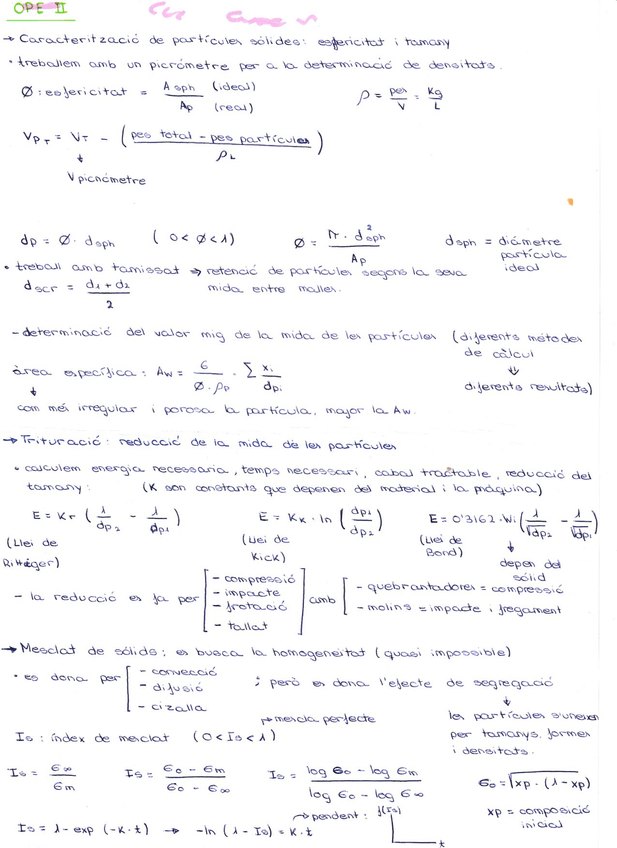 OPE II
→ Caracterització de partícules sòlides: esfericitat i tamany
• treballem amb un picròmetre per a la determinació de densitats.
Ø: esfericitat = A sph (ideal) / Ap (real)   ρ = pes/V = Kg/L
V P T = V T - (pes total - pes partícules / ρ L)
↓
V picnòmetre
dp = Ø · dsph   (0<Ø<1)   Ø = π · d²sph / Ap   dsph = diàmetre partícula ideal
• treball amb tamissat ⇒ retenció de partícules segons la seva mida entre malles.
dscr = d1 + d2 / 2
- determinació del valor mig de la mida de les partícules (diferents mètodes de càlcul
⇓
diferents resultats)
àrea específica: Aw = 6 / Ø · ρp · Σ xi / dpi
↓
com més irregular i porosa la partícula, major la Aw.
→ Trituració: reducció de la mida de les partícules
• calculem energia necessaria, temps necessari, cabal tractable, reducció del
tamany: (K són constants que depenen del material i la màquina)
E = Kr (1/dp2 - 1/dp1)   E = Kk · ln (dp1/dp2)   E = 0'3162 · Wi (1/√dp2 - 1/√dp1)
(Llei de Rittèger)   (Llei de Kick)   (Llei de Bond)   ↓ depen del sòlid
- la reducció es fa per
- compressió
- impacte
- frotació
- tallat
amb
- quebrantadores = compressió
- molins = impacte i fregament
→ Mesclat de sòlids: es busca la homogeneïtat (quasi impossible)
• es dona per
- convecció
- difusió
- cizalla
; però es dona l'efecte de segregació
↓
les partícules s'uneixen
per tamanys, formes
i densitats.
→ mescla perfecte
Is: índex de mesclat (0<Is<1)
Is = σ∞ / σm   Is = σ0 - σm / σ0 - σ∞   Is = log σ0 - log σm / log σ0 - log σ∞   σ0 = √xp · (1-xp)
xp = composició inicial
Is = 1 - exp (-K·t) → -ln (1 - Is) = K·t
→ pendent: f(Is)
t